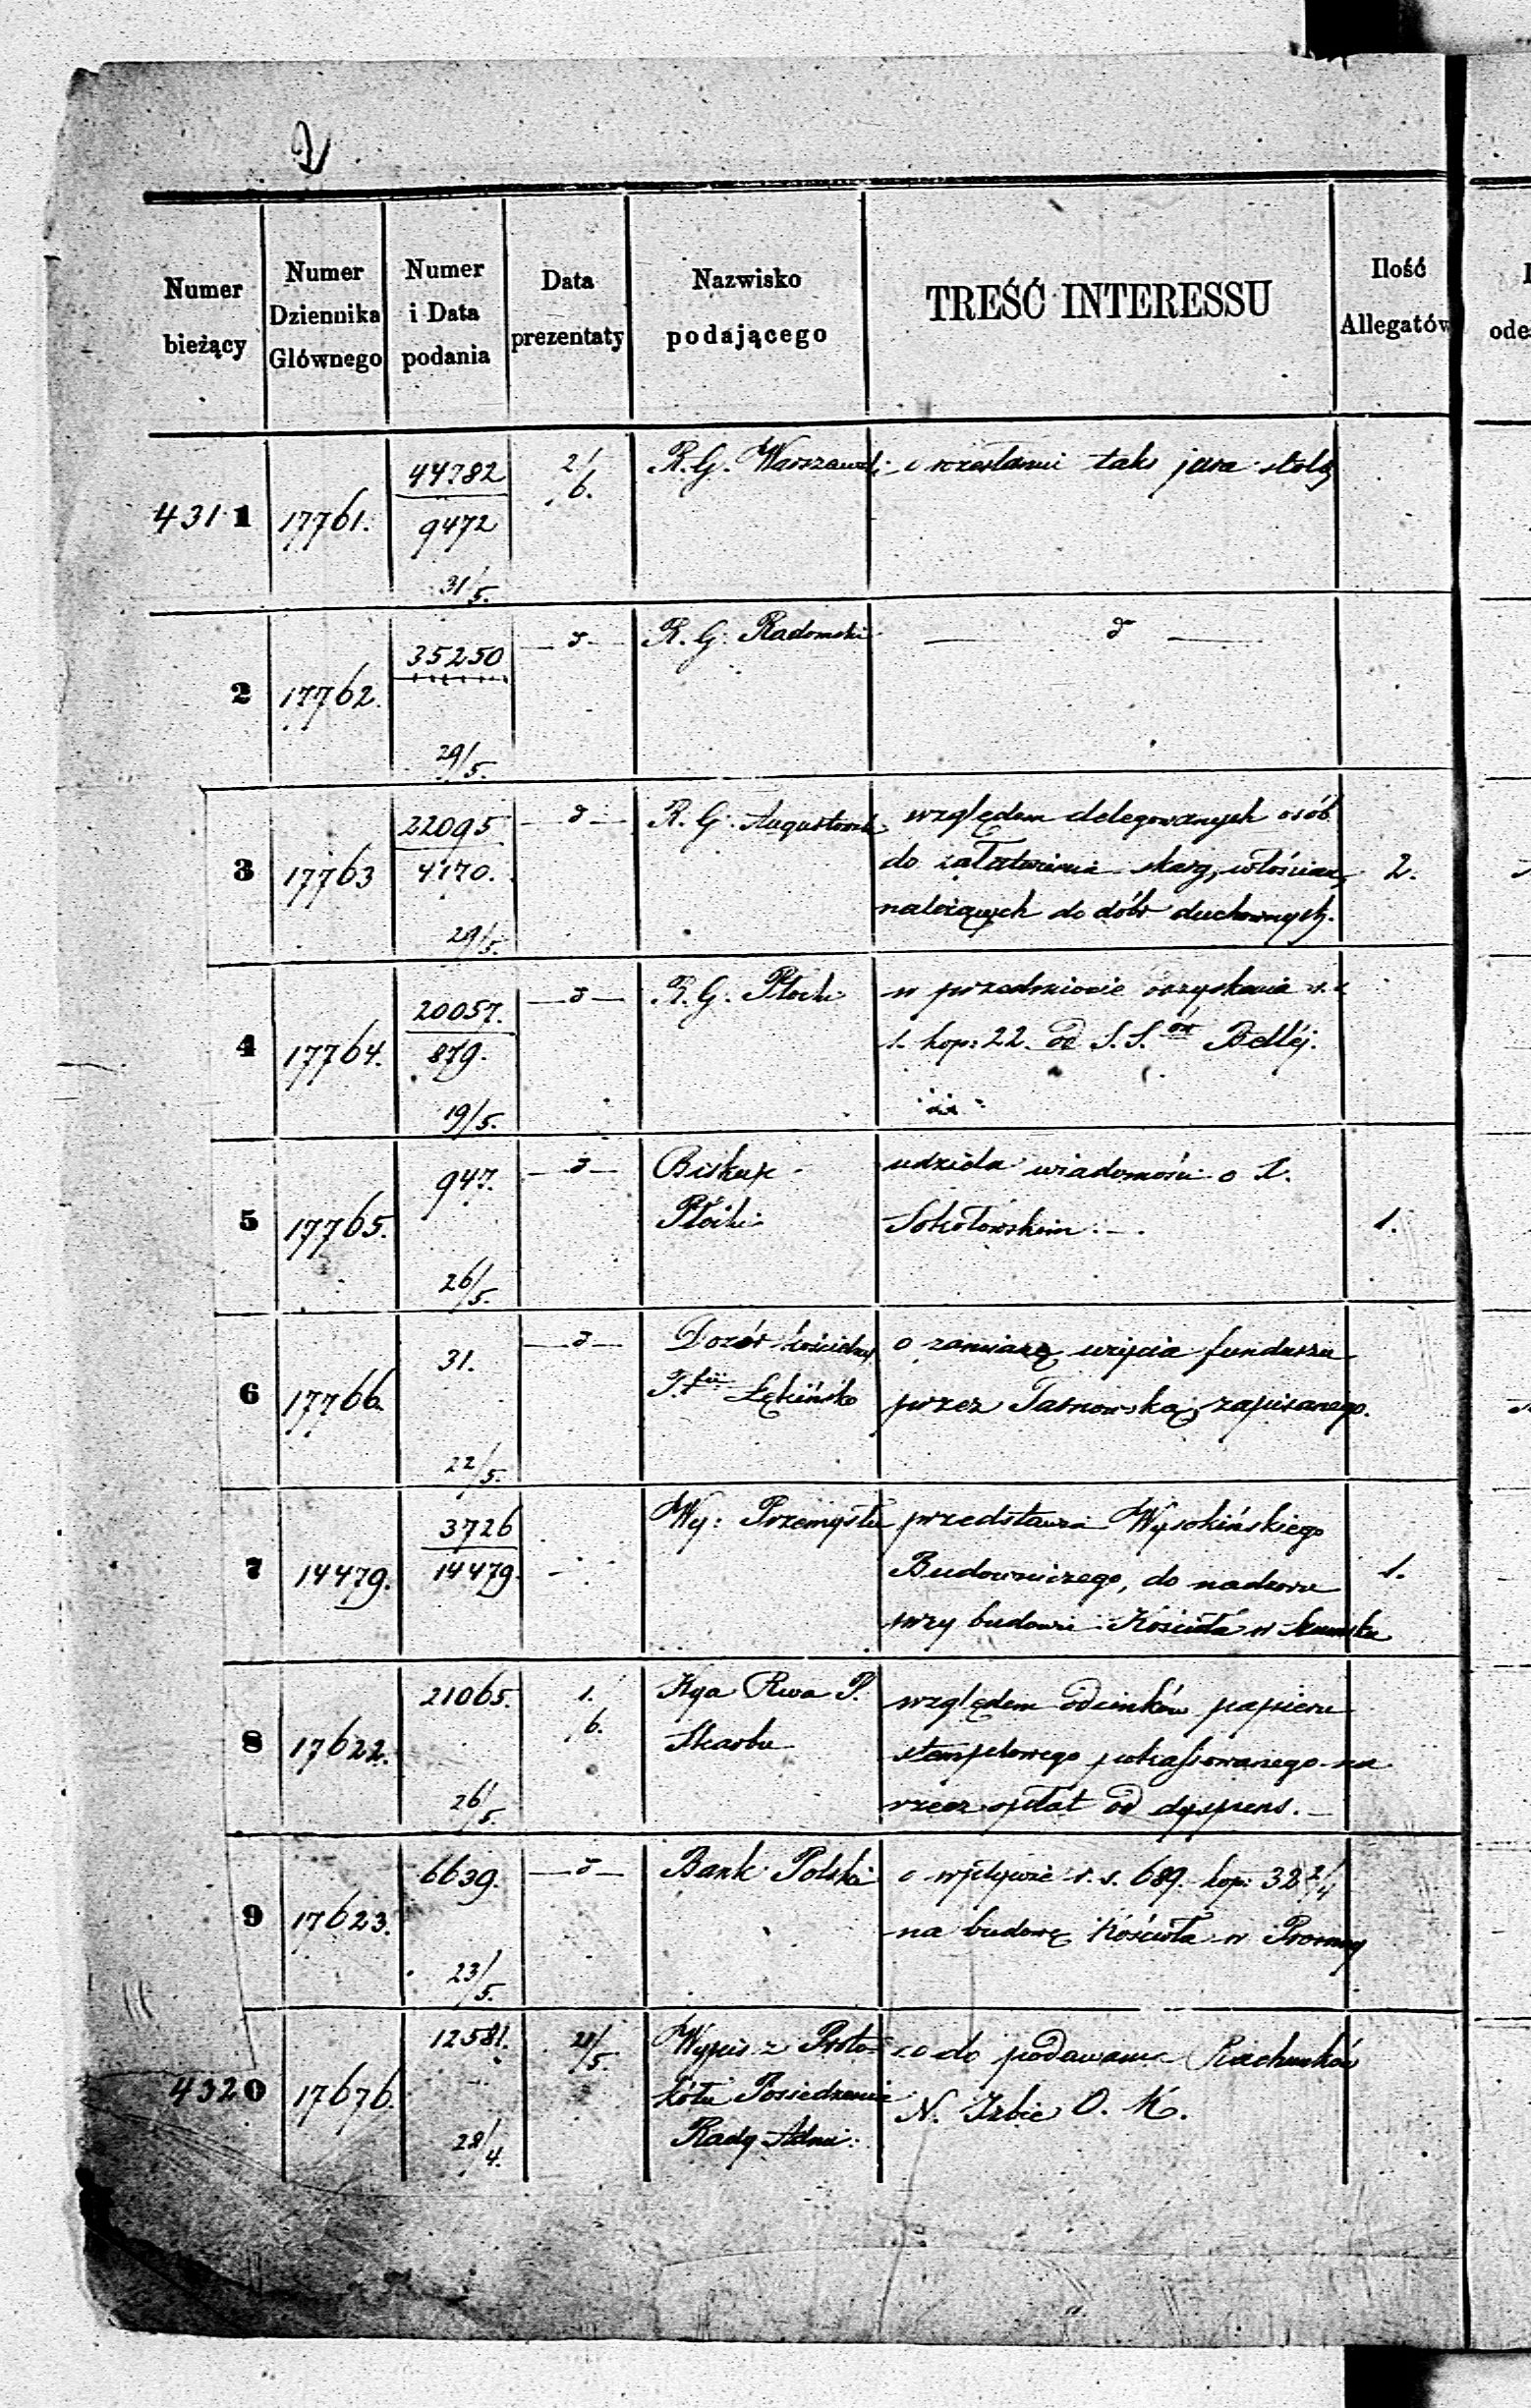 2
Numer bieżący
Numer Dziennika Głównego
Numer i Data podania
Data prezentaty
Nazwisko podającego
TREŚĆ INTERESSU
Ilość Allegatów
4311 17761. 44782 2/6. R. G. Warszawski o rozesłanie taks jura stolę
9472
31/5.
2 17762. 35250 —d— R. G. Radomski — d —
29/5.
3 17763 22095 —d— R. G. Augustowski względem delegowanych osób
4170. do załatwienia skarg włościan 2.
29/5. należących do dóbr duchownych.
4 17764. 20057. —d— R. G. Płocki w przedmiocie odzyskania r.
879. 1. kop: 22. od S. S. Belléj.
19/5.
5 17765. 947. —d— Biskup udziela wiadomości o X.
Płocki Sokołowskim. — 1.
26/5.
6 17766. 31. —d— Dozór kościelny o zamianę użycia funduszu
P. Łękińsko przez Tarnowską zapisanego.
22/5.
7 14479. 3726 Wy: Przemysłu przedstawia Wysokińskiego
14479. Budowniczego, do nadzoru 1.
przy budowie Kościoła w
8 17622. 21065. 1./6. Kga Rwa P. względem odcinków papieru
Skarbu stemplowego pokassowanego na
26/5. rzecz opłat od dyspens. —
9 17623. 6639. —d— Bank Polski o wpływie r. s. 689. kop: 38 2/4
na budowę Kościoła w
23/5.
4320 17676. 12581. 21/5. Wypis z Proto- co do podawania Rachunków
kółu Posiedzenia N. Izbie O. K.
28/4. Rady Admi: